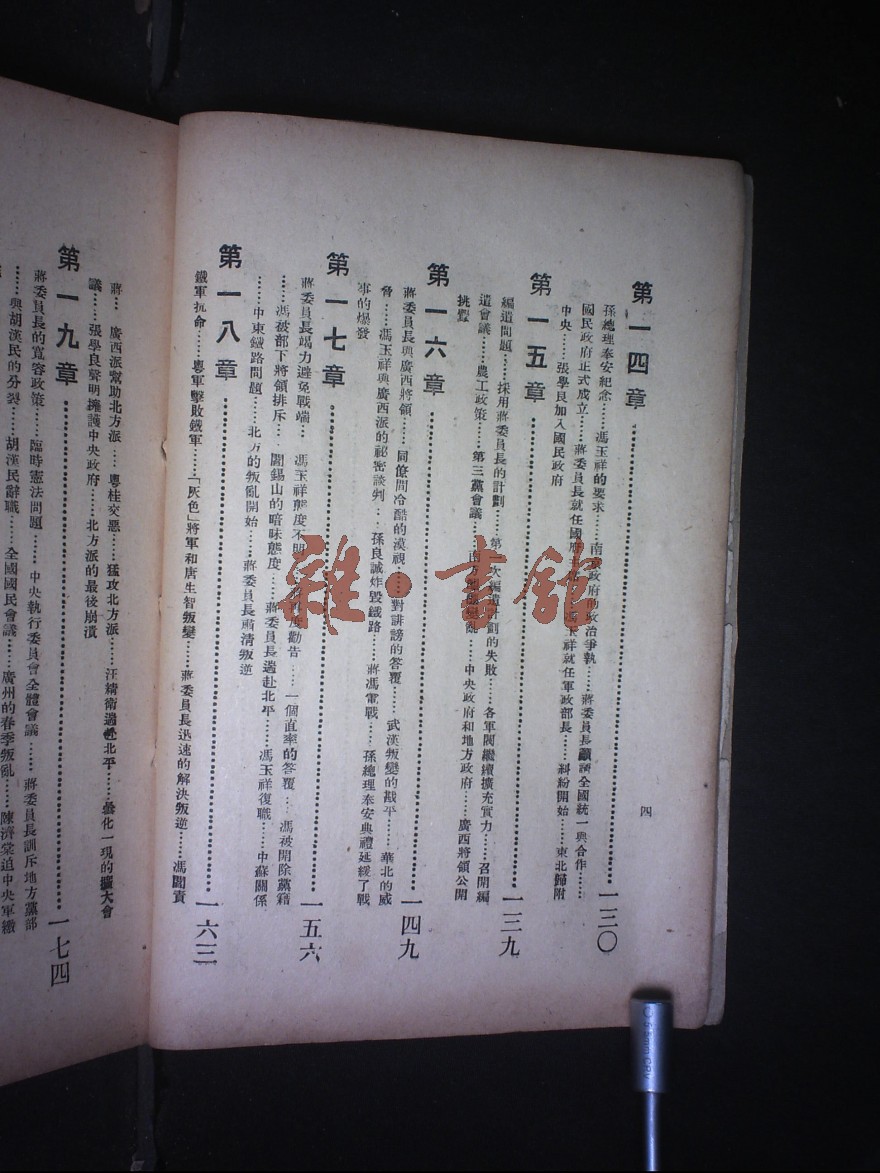 四
第一四章……一三〇
孫總理泰安紀念……馮玉祥的要求……南京政府的政治爭執……蔣委員長籲請全國統一與合作……
國民政府正式成立……蔣委員長就任國府主席……馮玉祥就任軍政部長……糾紛開始……東北歸附
中央……張學良加入國民政府
第一五章……一三九
編遣問題……採用蔣委員長的計劃……第一次編遣計劃的失敗……各軍閥繼續擴充實力……召開編
遣會議……農工政策……第三黨會議……南……變亂……中央政府和地方政府……廣西將領公開
挑釁
第一六章……一四九
蔣委員長與廣西將領……同僚間冷酷的漠視……對誹謗的答覆……武漢叛變的戡平……華北的威
脅……馮玉祥與廣西派的祕密談判……孫良誠炸毀鐵路……蔣馮電戰……孫總理奉安典禮延緩了戰
事的爆發
第一七章……一五六
蔣委員長竭力避免戰端……馮玉祥態度不明……再度勸告……一個直率的答覆……馮被開除黨籍
……馮被部下將領排斥……閻錫山的暗昧態度……蔣委員長遄赴北平……馮玉祥復職……中蘇關係
……中東鐵路問題……北方的叛亂開始……蔣委員長肅清叛逆
第一八章……一六三
鐵軍抗命……粵軍擊敗鐵軍……「灰色」將軍和唐生智叛變……蔣委員長迅速的解決叛逆……馮閻責
蔣……廣西派幫助北方派……粵桂交惡……猛攻北方派……汪精衛遄赴北平……曇化一現的擴大會
議……張學良聲明擁護中央政府……北方派的最後崩潰
第一九章……一七四
蔣委員長的寬容政策……臨時憲法問題……中央執行委員會全體會議……蔣委員長訓斥地方黨部
……與胡漢民的分裂……胡漢民辭職……全國國民會議……廣州的春季叛亂……陳濟棠迫中央軍繳
雜·書館